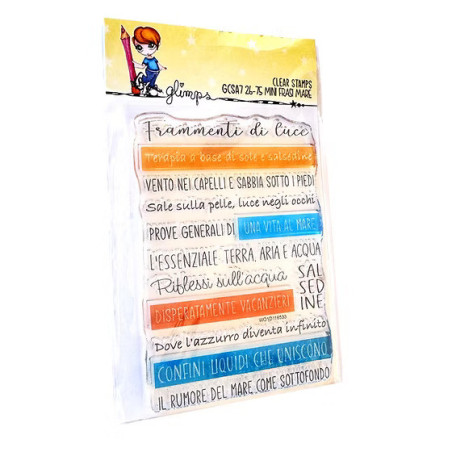 glimps
CLEAR STAMPS
GCSA7 26-75 MINI FRASI MARE
Frammenti di luce
Terapia a base di sole e salsedine
VENTO NEI CAPELLI E SABBIA SOTTO I PIEDI
Sale sulla pelle, luce negli occhi
PROVE GENERALI DI UNA VITA AL MARE
L'ESSENZIALE: TERRA, ARIA E ACQUA
Riflessi sull'acqua
SAL
SED
INE
DISPERATAMENTE VACANZIERI
Dove l'azzurro diventa infinito
CONFINI LIQUIDI CHE UNISCONO
IL RUMORE DEL MARE COME SOTTOFONDO